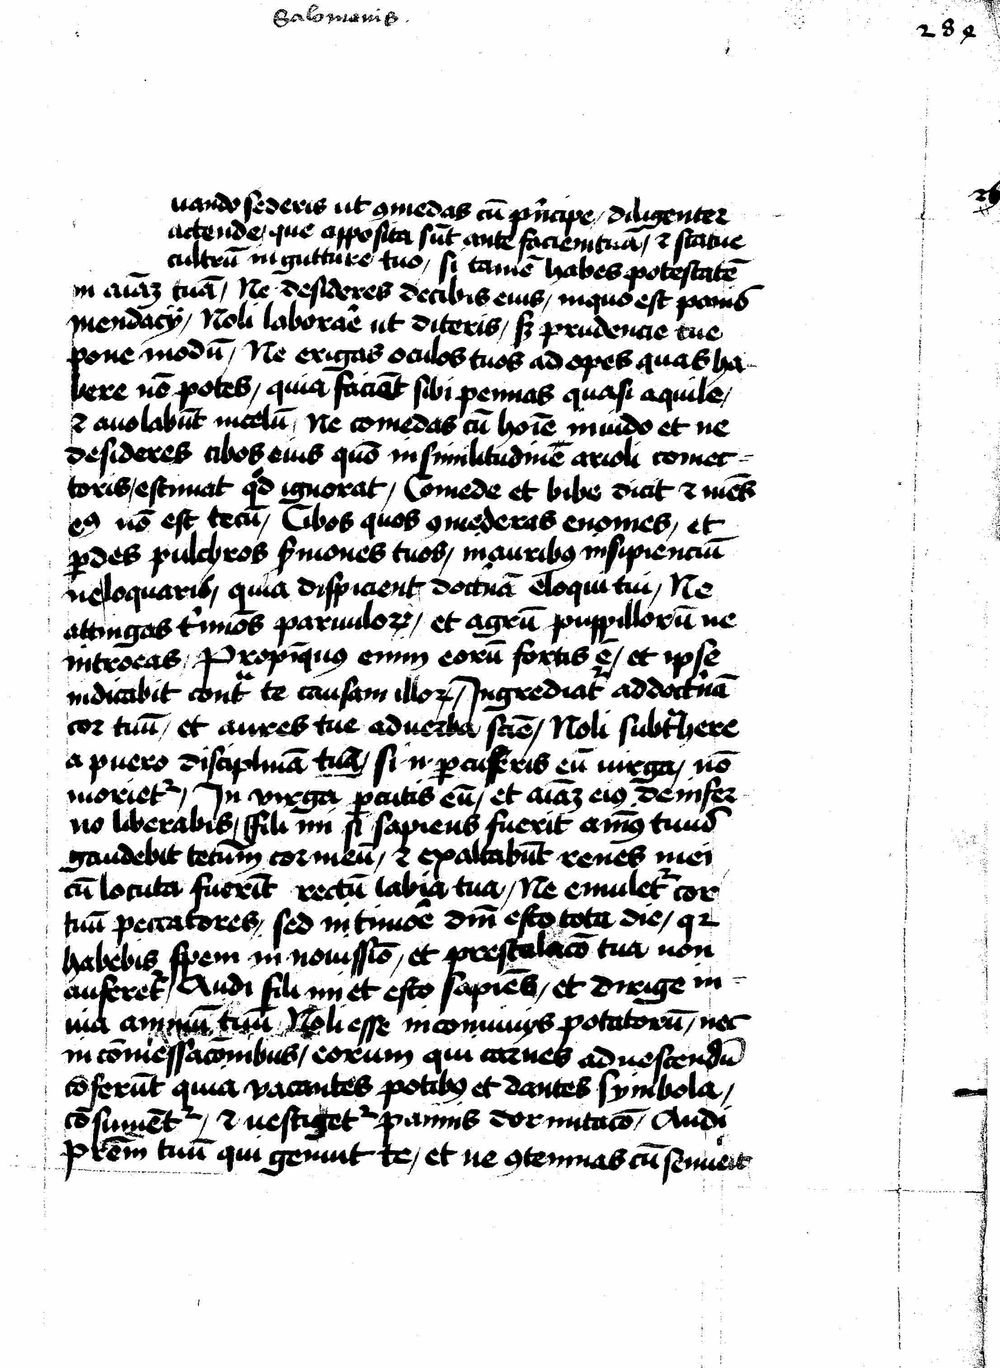 Salomonis.
284
uando sederis ut ꝯmedas cū pͥncipe / diligenter
attende / que apposita sūt ante faciem tuā / ⁊ statue
cultrū in gutture tuo / si tamē habes potestatē
in aīaꝫ tuā / Ne desideres de cibis eius / in quo est panis
mendacij / Noli laborare ut diteris / sꝫ prudencie tue
pone modū / Ne erigas oculos tuos ad opes quas ha-
bere nō potes / quia faciēt sibi pennas quasi aquile /
⁊ auolabūt in celū / Ne comedas cū hoīe inuido et ne
desideres cibos eius quō in similitudinē arioli coniec-
toris / estimat qd ignorat / Comede et bibe dicit ⁊ mēs
eꝯ nō est tecū / Cibos quos ꝯmederas euomes / et
ꝑdes pulchros sͬmones tuos / in auribꝯ insipienciū
ne loquaris / quia despicient doctͥnā eloquii tui / Ne
attingas tͬmīos paruuloꝝ / et agrū puppillorū ne
introeas / Propīquꝯ enim eorū fortis ē / et ipse
iudicabit contͣ te causam illoꝝ / Ingrediatͬ ad doctͥnā
cor tuū / et aures tue ad uerba sciē / Noli subtͬhere
a puero disciplinā tuā / si .n. ꝑcusseris eū uirga / nō
morietͬ / In virga ꝑcutis eū / et aīaꝫ eiꝯ de infer-
no liberabis / Fili mi si sapiens fuerit aīmꝯ tuus
gaudebit tecum cor meū / ⁊ exaltabūt renes mei
cū locuta fuerīt rectū labia tua / Ne emuletͬ cor
tuū peccatores / sed in timore dīn esto tota die / qꝛ
habebis spem in nouissīo / et prestolacō tua non
auferetͬ / Audi fili mi et esto sapiēs / et dirige in
uia animū tuū / Noli esse in conuiuijs potatorū / nec
in cōmessacōnibus / eorum qui carnes ad uescendū
cōferūt quia vacantes potibꝯ et dantes symbola /
cōsumētͬ / ⁊ uestigetͬ pannis dormitacō / Audi
Prēm tuū qui genuit te / et ne ꝯtemnas cū senuerit